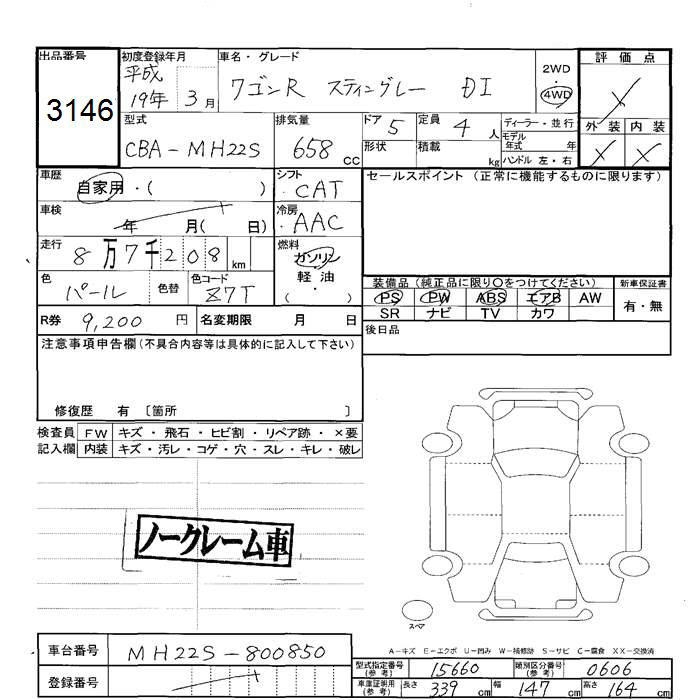 出品番号 初度登録年月 車名・グレード 評価点
3146 平成 19年 3月 ワゴンR スティングレー DI 2WD 4WD
外装 内装
型式 排気量 ドア 5 定員 4人 ディーラー・並行
CBA-MH22S 658cc 形状 積載 kg モデル年式 年
ハンドル 左・右
車歴 自家用・( ) シフト CAT セールスポイント (正常に機能するものに限ります)
車検 年 月( 日) 冷房 AAC
走行 8万7千208km 燃料 ガソリン 軽油 ・( )
色 パール 色替 色コード Z7T
装備品(純正品に限り○をつけてください) 新車保証書
PS PW ABS エアB AW 有・無
SR ナビ TV カワ
R券 9,200円 名変期限 月 日 後日品
注意事項申告欄(不具合内容等は具体的に記入して下さい)
修復歴 有 〔箇所 〕
検査員 FW キズ・飛石・ヒビ割・リペア跡・×要
記入欄 内装 キズ・汚レ・コゲ・穴・スレ・キレ・破レ
ノークレーム車
スペア
A-キズ E-エクボ U-凹み W-補修跡 S-サビ C-腐食 XX-交換済
車台番号 MH22S-800850 型式指定番号(参考) 15660 類別区分番号(参考) 0606
登録番号 車庫証明用(参考) 長さ 339cm 幅 147cm 高さ 164cm